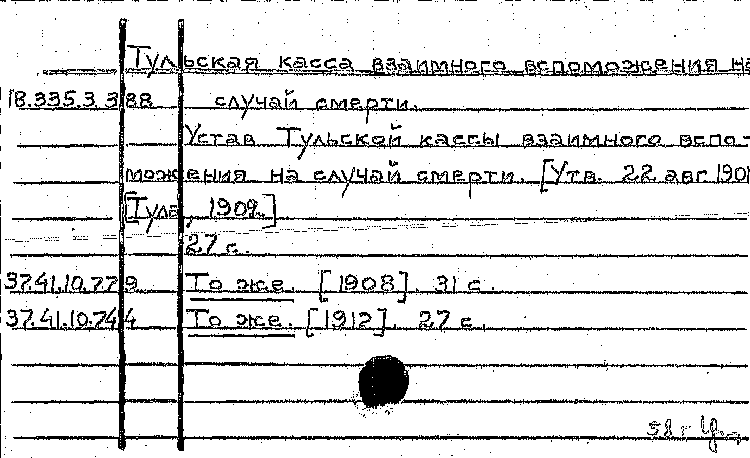 Тульская касса взаимного вспоможения на
18.335.3.388 случай смерти.
Устав Тульской кассы взаимного вспо-
можения на случай смерти. [Утв. 22 авг 190
[Тула, 1909.]
27 с.
37.41.10.779 То же. [1908]. 31 с.
37.41.10.744 То же. [1912]. 27 с.